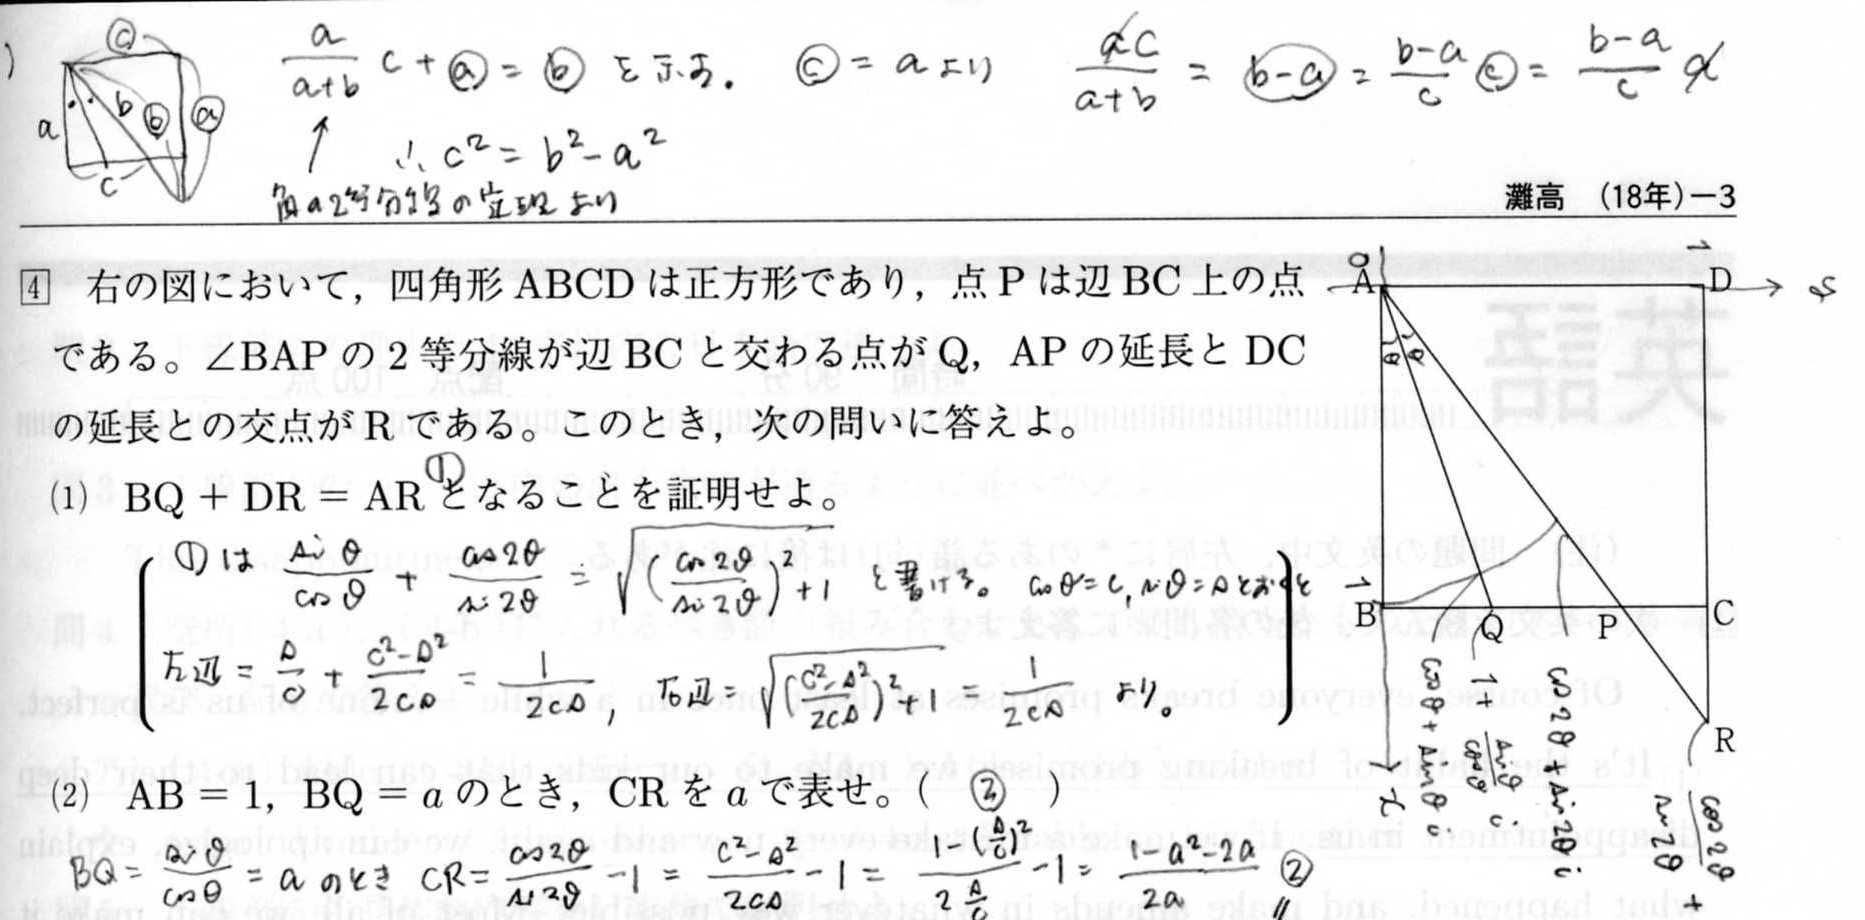 a/(a+b) c + ⓐ = ⓑ を示す。 ⓒ = a より ac/(a+b) = ⓑ-ⓐ = (b-a)/c ⓒ = (b-a)/c a
∴ c² = b² - a²
角の2等分線の定理より
a b ⓑ ⓐ ⓒ c
灘高 (18年)-3
4 右の図において，四角形 ABCD は正方形であり，点 P は辺 BC 上の点
である。∠BAP の 2 等分線が辺 BC と交わる点が Q，AP の延長と DC
の延長との交点が R である。このとき，次の問いに答えよ。
(1) BQ + DR = AR ① となることを証明せよ。
①は sinθ/cosθ + cos2θ/sin2θ = √((cos2θ/sin2θ)² + 1) と書ける。 cosθ = c, sinθ = s とおくと
左辺 = s/c + (c²-s²)/2cs = 1/2cs, 右辺 = √(((c²-s²)/2cs)² + 1) = 1/2cs より。
(2) AB = 1，BQ = a のとき，CR を a で表せ。( ② )
BQ = sinθ/cosθ = a のとき CR = cos2θ/sin2θ - 1 = (c²-s²)/2cs - 1 = (1-(s/c)²)/(2 s/c) - 1 = (1-a²-2a)/2a ②
0 1
A D
θ θ
1
B Q P C
R
cosθ + sinθ i
1 + sinθ/cosθ i
cos2θ + sin2θ i
cos2θ/sin2θ +
x